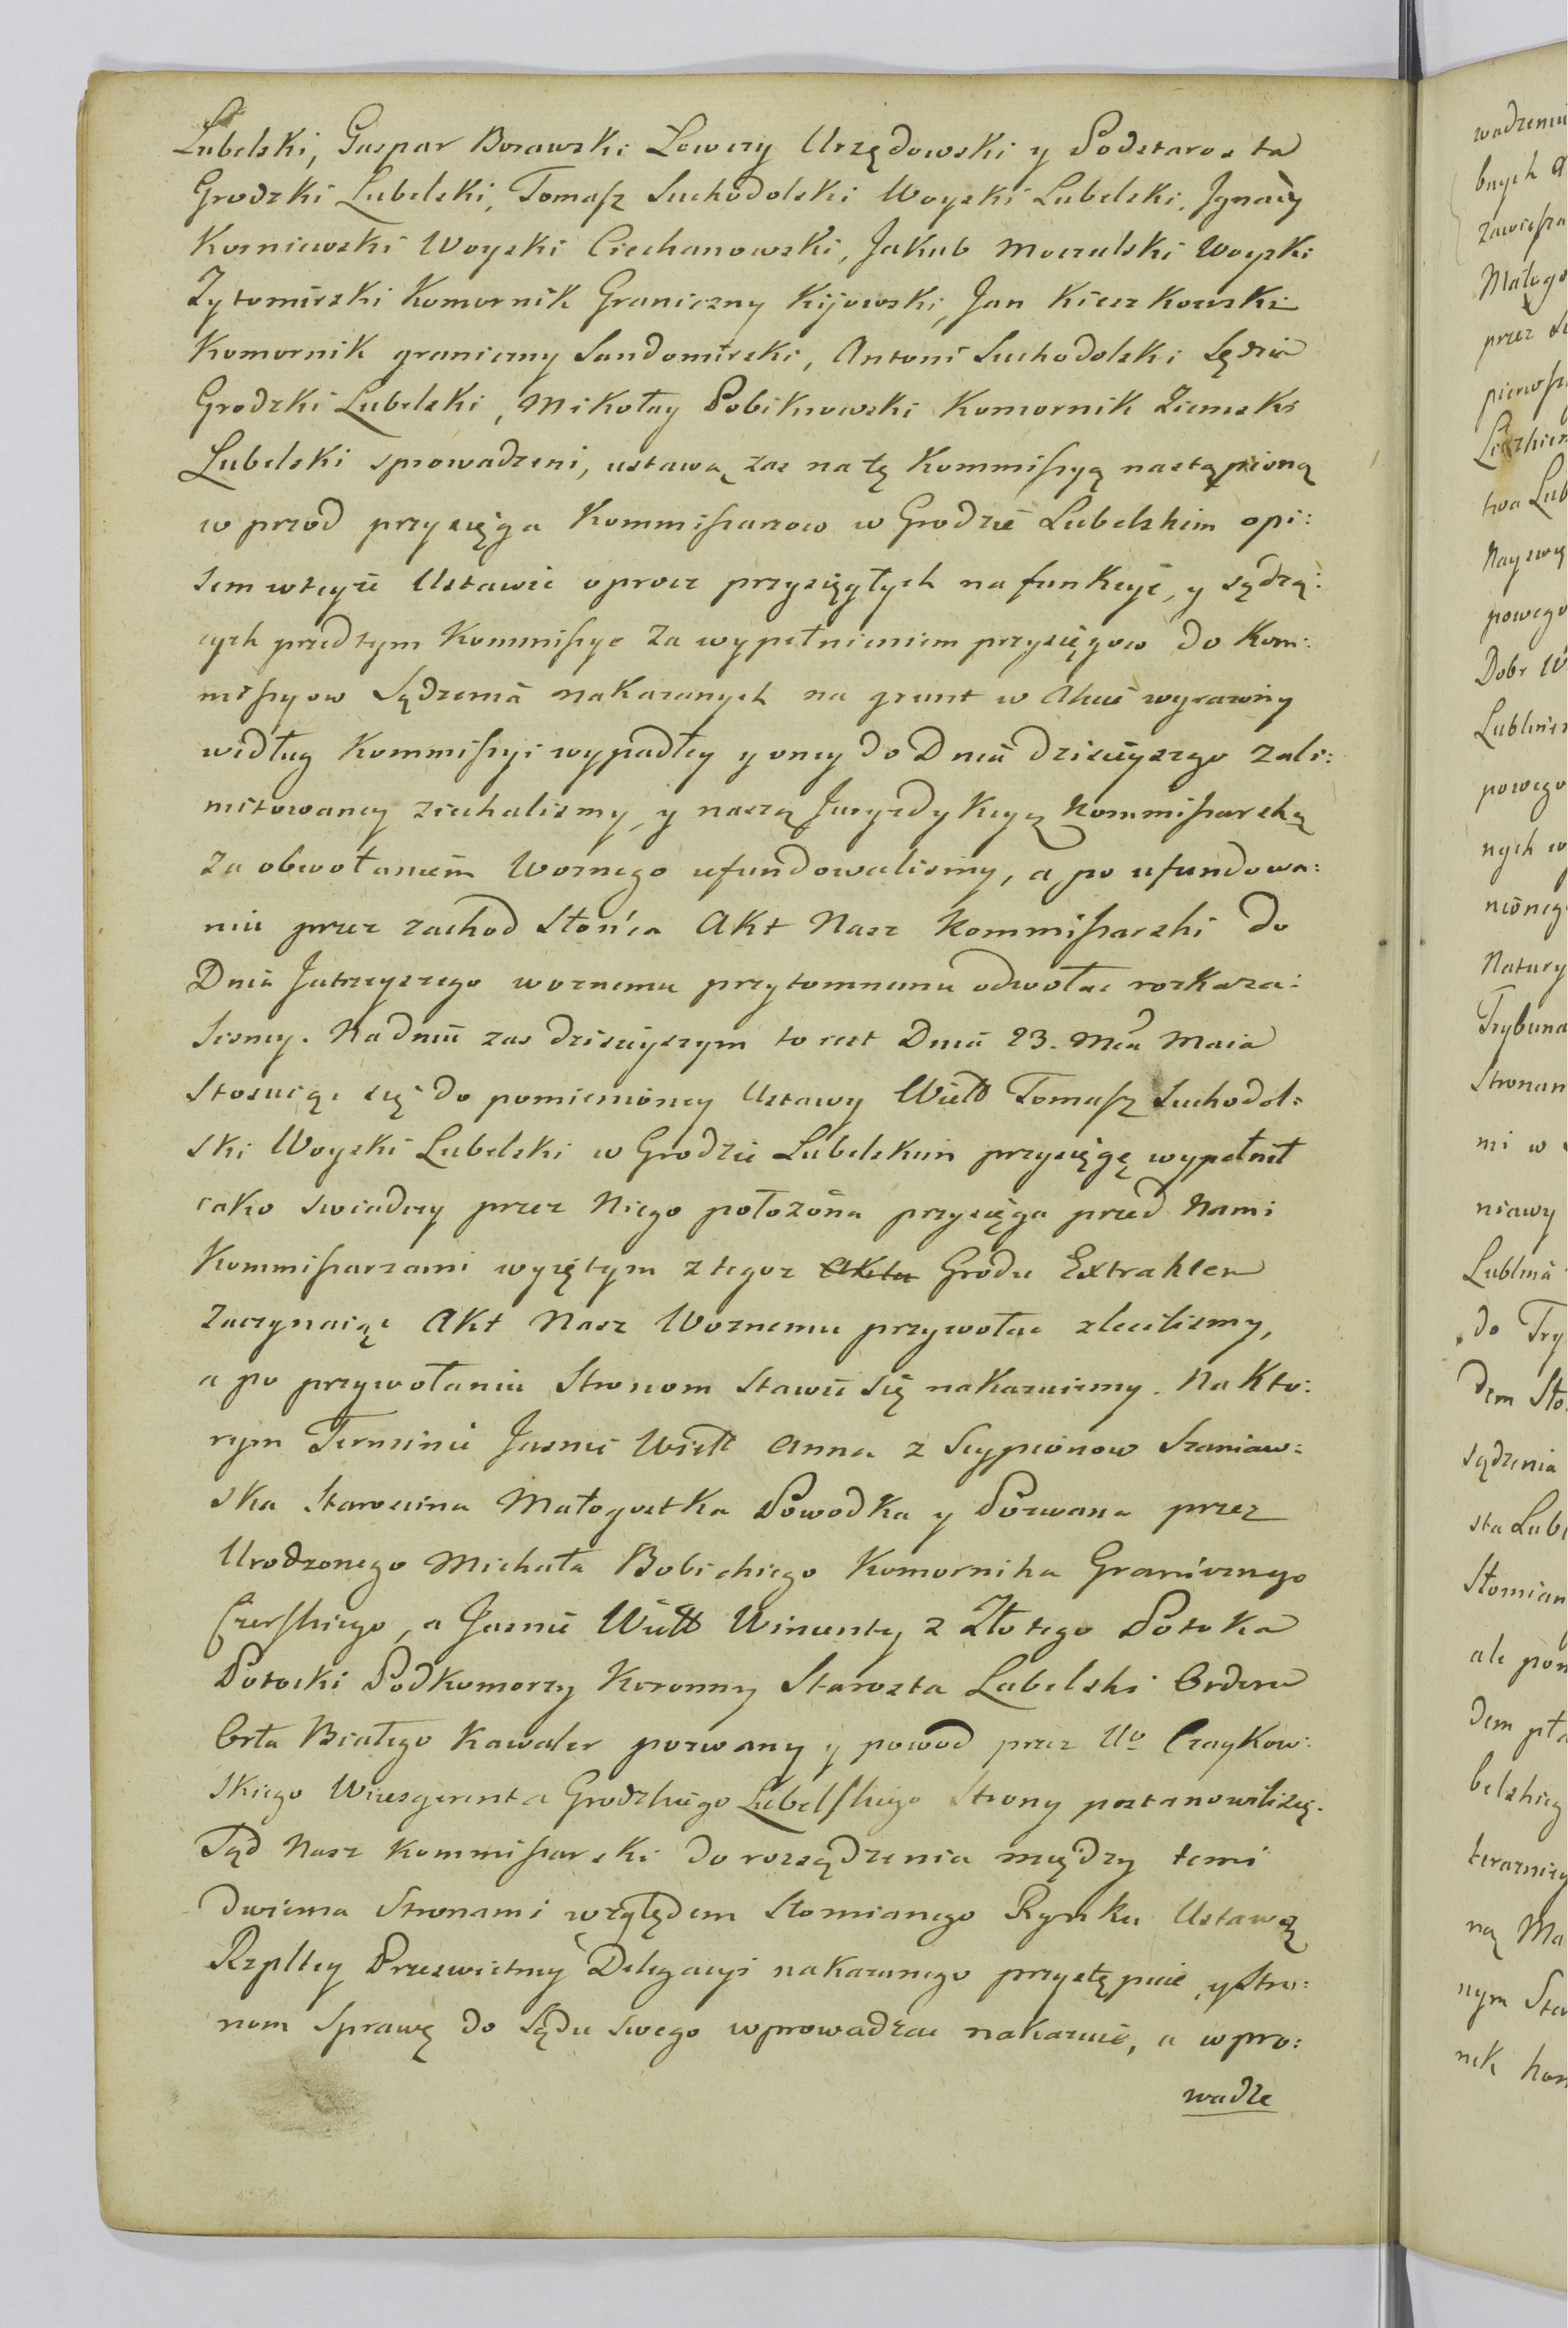 Lubelski, Gaspar Borawski Łowczy Urzędowski y Podstarosta
Grodzki Lubelski, Tomasz Suchodolski Woyski Lubelski, Jgnacy
Kosniewski Woyski Ciechanowski, Jakub Moczulski Woyski
Zytomirski Komornik Graniczny Kijowski, Jan Kieszkowski
Komornik graniczny Sandomirski, Antoni Suchodolski Sędzia
Grodzki Lubelski, Mikołay Pobiknowski Komornik Ziemski
Lubelski sprowadzeni, ustawą zas na tę Kommissyą nastąpioną
w przod przysięga Kommissarzow w Grodzie Lubelskim opi:
sem wteyze Ustawie oprocz przysięgłych na funkcye, y sądzą:
cych przedtym Kommissye za wypełnieniem przysięgow do Kom:
missyow Sądzenia nakazanych na grunt w Akcie wyrazony
według Kommissyi wypadłey y oney do Dnia dzisieyszego zali:
mitowaney ziechalismy, y naszą Jurysdykcyą Kommissarską
za obwołaniem Woznego ufundowalismy, a po ufundowa:
niu przez zachod Słońca Akt Nasz Kommissarski do
Dnia Jutrzyszego woznemu przytomnemu odwołac rozkaza:
lismy. Na dniu zas dzisieyszym to iest Dnia 23. Mca Maia
Stosuiąc się do pomienioney Ustawy Wielb Tomasz Suchodol:
ski Woyski Lubelski w Grodzie Lubelskim przysięgę wypełnił
iako swiadczy przez Niego położona przysięga przed Nami
Kommissarzami wyiętym z tegoz Aktu Grodu Extraktem
Zaczynaiąc Akt Nasz Woznemu przywołac zlecilismy,
a po przywołaniu Stronom Stawic się nakazuiemy. Na Kto:
rym Terminie Jasnie Wielb Anna z Scypionow Szaniaw:
ska Starocina Małogostka Powodka y Pozwana przez
Urodzonego Michała Bobickiego Komornika Granicznego
Czerskiego, a Jasnie Wielb Wincenty z Złotego Potoka
Potocki Podkomorzy Koronny Starosta Lubelski Orderu
Orła Białego Kawaler pozwany y powod przez Uo Czaykow:
skiego Wicesgerenta Grodzkiego Lubelskiego Strony postanowili się.
Sąd Nasz Kommissarski do rozsądzenia między temi
dwiema Stronami względem Słomianego Rynku Ustawą
Rzpltey Przeswietney Delegacyi nakazanego przystępuie, y Stro:
nom Sprawę do Sądu swego wprowadzac nakazuie, a wpro:
wadze
wadzeniu
bnych
zawiesza
Małogo
przez
pierwsz
twa Lub
powego
Dobr
powego
nych w
Natury
Trybuna
Stronam
mi w
niawy
Lublina
do Try
dem Sło
sądzenia
sta Lub
Słomian
ale pom
dem pła
belskieg
ną Ma
nym
nik